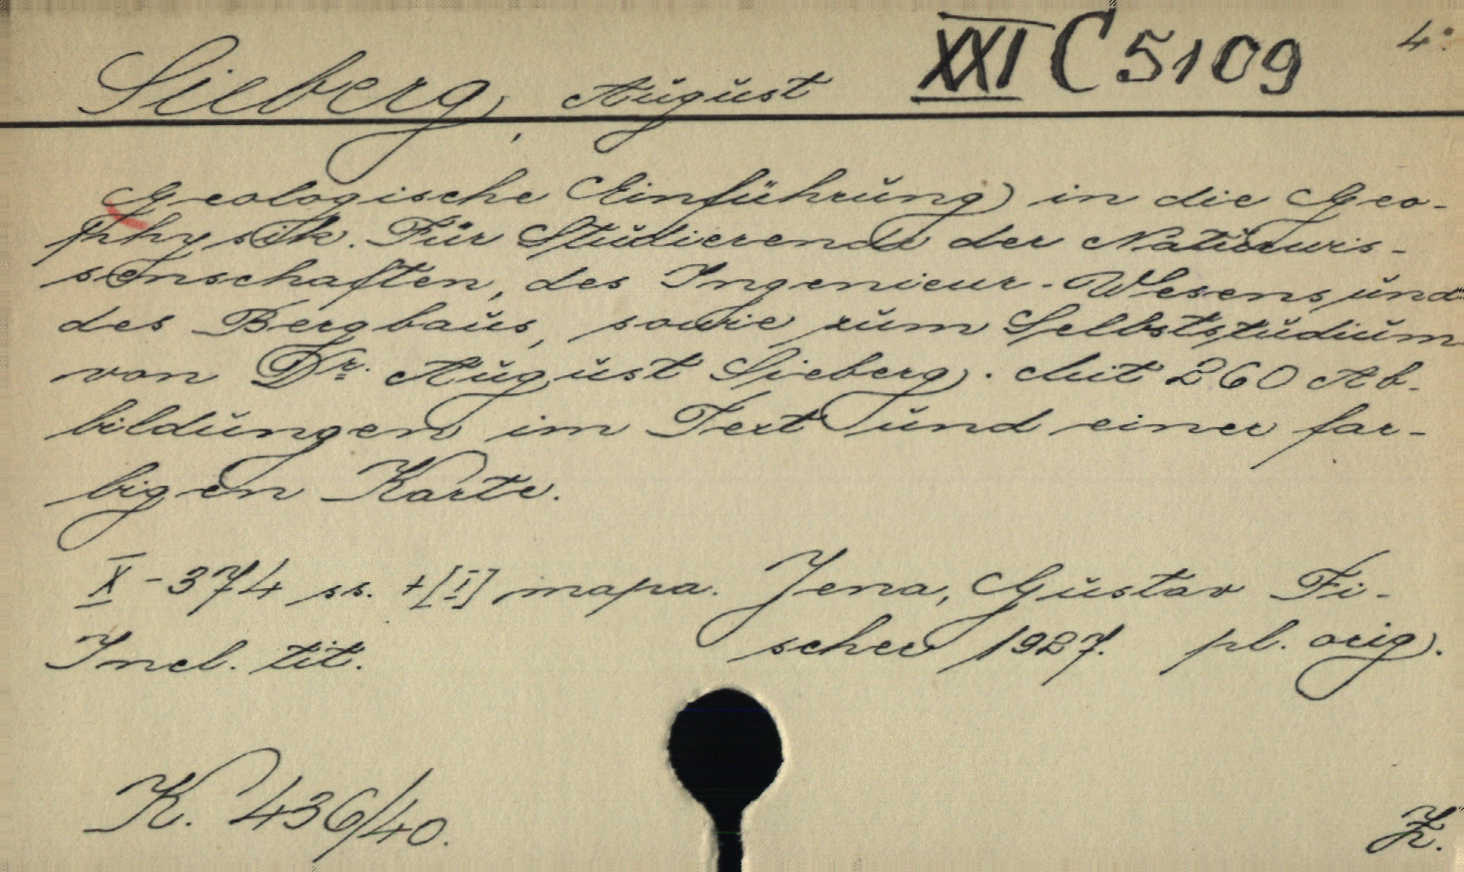 XXI C 5109 4°
Sieberg, August
Geologische Einführung in die Geo-
physik. Für Studierende der Naturwis-
senschaften, des Ingenieur-Wesens und
des Bergbaus, sowie zum Selbststudium
von Dr. August Sieberg. Mit 260 Ab-
bildungen im Text und einer far-
bigen Karte.
X-374 ss. +[I] mapa. Jena, Gustav Fi-
scher 1927. pl. orig.
Incl. tit.
K. 436/40.